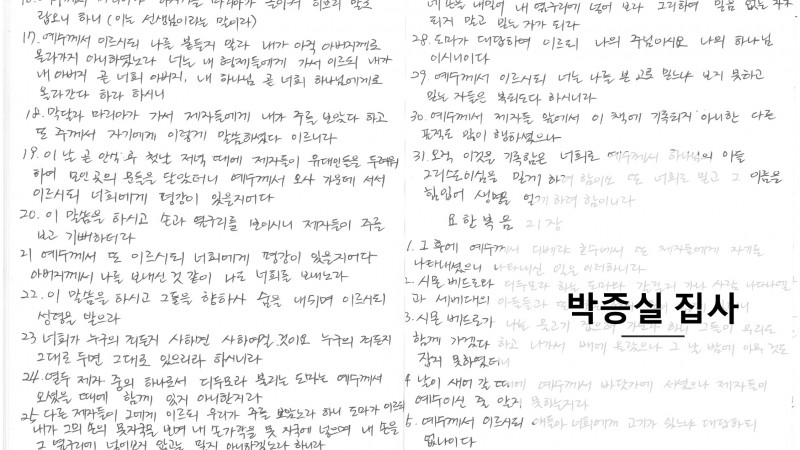 랍오니 하니 (이는 선생님이라는 말이라)
17. 예수께서 이르시되 나를 붙들지 말라 내가 아직 아버지께로
올라가지 아니하였노라 너는 내 형제들에게 가서 이르되 내가
내 아버지 곧 너희 아버지, 내 하나님 곧 너희 하나님에게로
올라간다 하라 하시니
18. 막달라 마리아가 가서 제자들에게 내가 주를 보았다 하고
또 주께서 자기에게 이렇게 말씀하셨다 이르니라
19. 이 날 곧 안식 후 첫날 저녁 때에 제자들이 유대인들을 두려워
하여 모인 곳의 문들을 닫았더니 예수께서 오사 가운데 서서
이르시되 너희에게 평강이 있을지어다
20. 이 말씀을 하시고 손과 옆구리를 보이시니 제자들이 주를
보고 기뻐하더라
21 예수께서 또 이르시되 너희에게 평강이 있을지어다
아버지께서 나를 보내신 것 같이 나도 너희를 보내노라
22. 이 말씀을 하시고 그들을 향하사 숨을 내쉬며 이르시되
성령을 받으라
23 너희가 누구의 죄든지 사하면 사하여질 것이요 누구의 죄든지
그대로 두면 그대로 있으리라 하시니라
24. 열두 제자 중의 하나로서 디두모라 불리는 도마는 예수께서
오셨을 때에 함께 있지 아니한지라
25 다른 제자들이 그에게 이르되 우리가 주를 보았노라 하니 도마가 이르되
내가 그의 손의 못자국을 보며 내 손가락을 못 자국에 넣으며 내 손을
그 옆구리에 넣어보지 않고는 믿지 아니하겠노라 하니라
네 손을 내밀어 내 옆구리에 넣어 보라 그리하여 믿음 없는 자가
되지 말고 믿는 자가 되라
28. 도마가 대답하여 이르되 나의 주님이시요 나의 하나님
이시니이다
29. 예수께서 이르시되 너는 나를 본 고로 믿느냐 보지 못하고
믿는 자들은 복되도다 하시니라
30. 예수께서 제자들 앞에서 이 책에 기록되지 아니한 다른
표적도 많이 행하셨으나
31. 오직 이것을 기록함은 너희로 예수께서 하나님의 아들
그리스도이심을 믿게 하려 함이요 또 너희로 믿고 그 이름을
힘입어 생명을 얻게 하려 함이니라
요한복음 21장
1. 그 후에 예수께서 디베랴 호수에서 또 제자들에게 자기를
나타내셨으니 나타내신 일은 이러하니라
2. 시몬 베드로와 디두모라 하는 도마와 갈릴리 가나 사람 나다나엘
과 세베대의 아들들과
3. 시몬 베드로가 나는 물고기 잡으러 가노라 하니 그들이 우리도
함께 가겠다 하고 나가서 배에 올랐으나 그 날 밤에 아무 것도
잡지 못하였더니
4 날이 새어 갈 때에 예수께서 바닷가에 서셨으나 제자들이
예수이신 줄 알지 못하는지라
5. 예수께서 이르시되 얘들아 너희에게 고기가 있느냐 대답하되
없나이다
박증실 집사